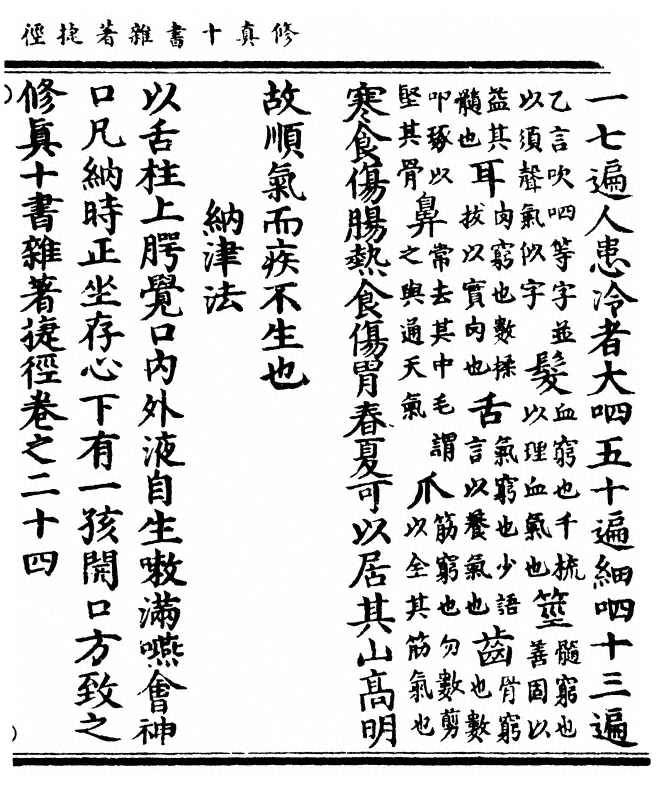 修真十書雜著捷徑
一七遍人患冷者大呬五十遍細呬十三遍
乙言吹呬等字並
以須聲氣似字
髮
血窮也千梳
以理血氣也
髓窮也
善固以
益其
髓也
耳
肉窮也數揉
拔以實肉也
舌
氣窮也少語
言以養氣也
齒
骨窮
也數
叩琢以
堅其骨
鼻
常去其中毛謂
之與通天氣
爪
筋窮也勿數剪
以全其筋氣也
寒食傷腸熱食傷胃春夏可以居其山高明
故順氣而疾不生也
納津法
以舌柱上腭覺口內外液自生嗽滿嚥會神
口凡納時正坐存心下有一孩開口方致之
修眞十書雜著捷徑卷之二十四